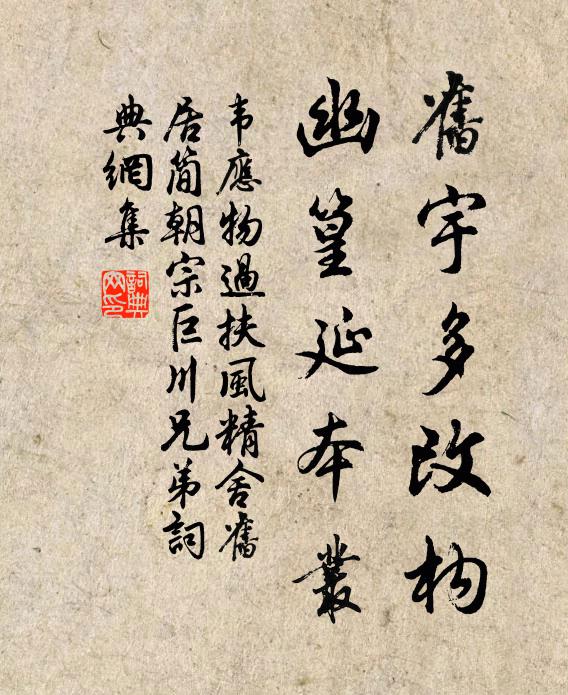 舊宇多改构
幽篁延本叢
韦應物過扶風精舍舊
居簡朝宗巨川兄弟詞
典網集
詞典网印